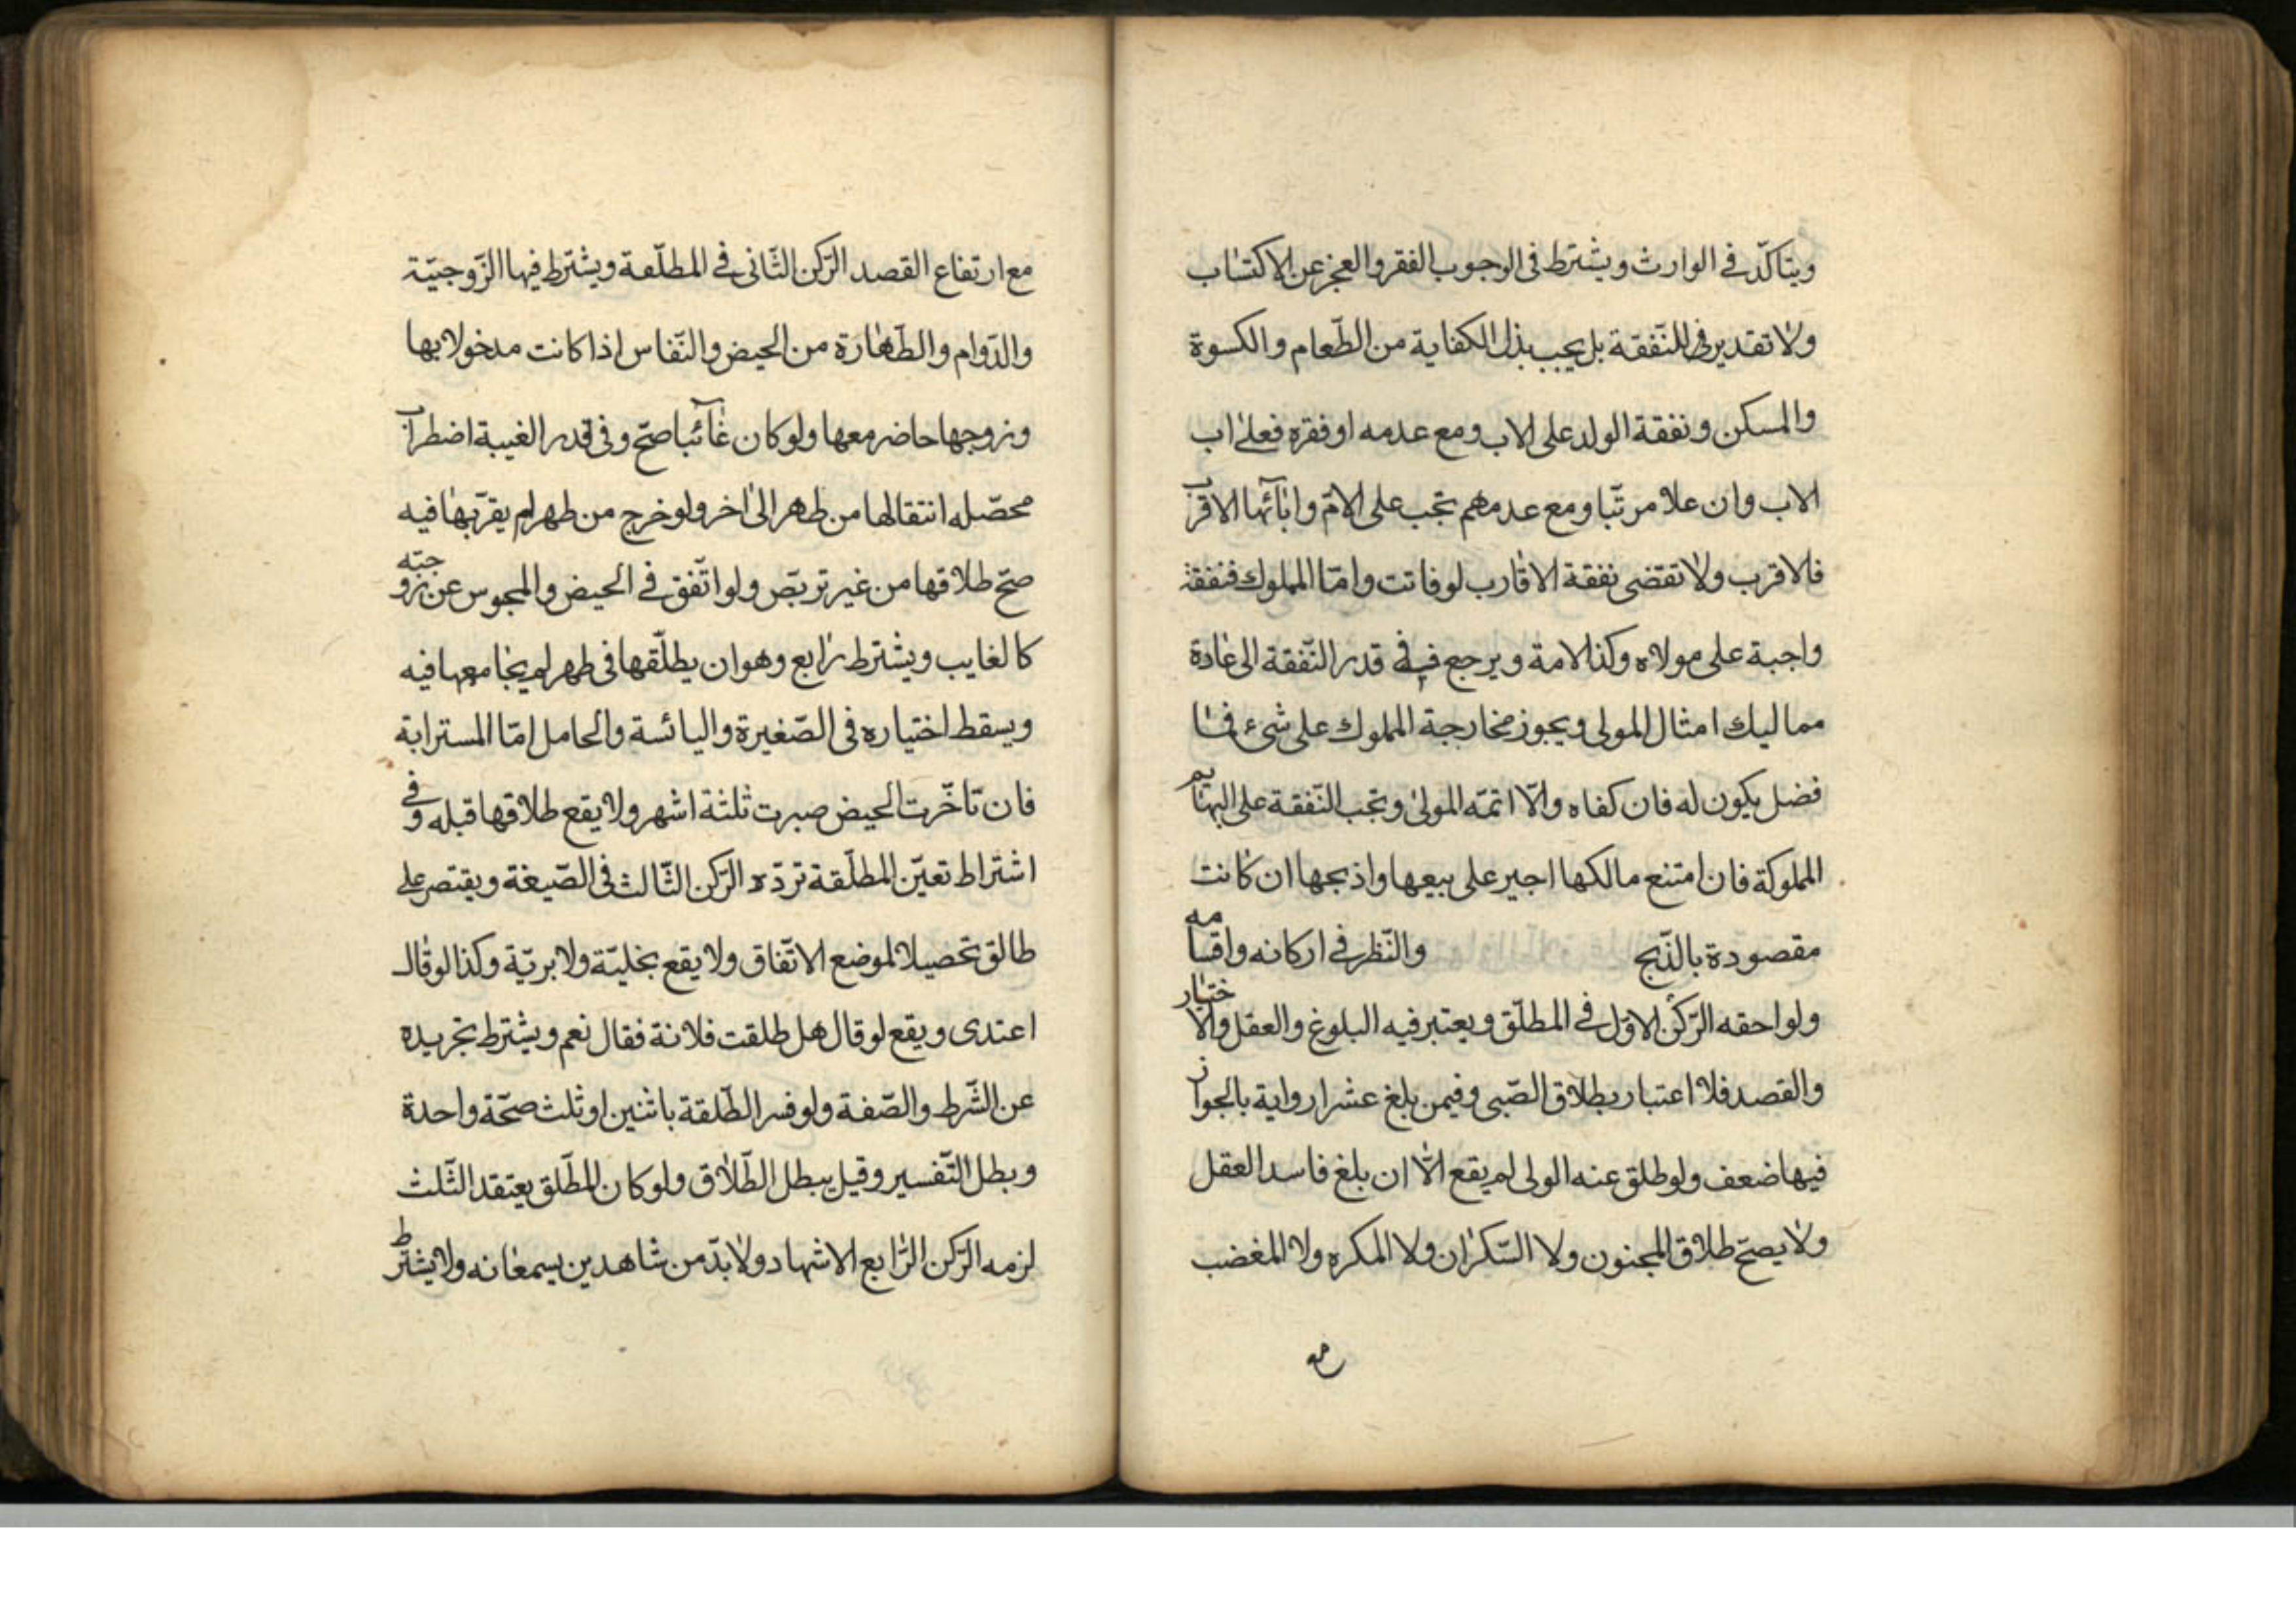 ويتاكّد في الوارث ويشترط في الوجوب الفقر والعجز عن الاكتساب
ولا تقدير في للنّفقة بل يجب بذل الكفاية من الطّعام والكسوة
والمسكن ونفقة الولد على الاب ومع عدمه او فقره فعلى اب
الاب وان علا مرتّبا ومع عدمهم تجب على الامّ وابآئها الاقرب
فالاقرب ولا تقضى نفقة الاقارب لو فاتت وامّا المملوك فنفقته
واجبة على مولاه وكذا الامة ويرجع في قدر النّفقة الى عادة
مماليك امثال المولى ويجوز مخارجة المملوك على شىء فما
فضل يكون له فان كفاه والّا اتمّه المولى وتجب النّفقة على البهايم
المملوكة فان امتنع مالكها اجبر على بيعها او اذبحها ان كانت
مقصودة بالذّبح والنّظر في اركانه واقسامه
ولواحقه الرّكن الاوّل في المطلّق ويعتبر فيه البلوغ والعقل والاختيار
والقصد فلا اعتبار بطلاق الصّبى وفيمن بلغ عشرا رواية بالجواز
فيها ضعف ولو طلق عنه الولى لم يقع الّا ان بلغ فاسد العقل
ولا يصحّ طلاق المجنون ولا السّكران ولا المكره ولا المغضب
مع
مع ارتفاع القصد الرّكن الثّانى في المطلّقة ويشترط فيها الزّوجيّة
والدّوام والطّهارة من الحيض والنّفاس اذا كانت مدخولا بها
وزوجها حاضر معها ولو كان غآئبا صحّ وفى قدر الغيبة اضطراب
محصّله انتقالها من طهر الى اخر ولو خرج من طهر لم يقرّبها فيه
صحّ طلاقها من غير تربّص ولو اتّفق في الحيض والمحبوس عن زوجته
كالغايب ويشترط رابع وهو ان يطلّقها فى طهر لم يجامعها فيه
ويسقط اختياره فى الصّغيرة واليائسة والحامل امّا المسترابة
فان تاخّرت الحيض صبرت ثلثة اشهر ولا يقع طلاقها قبله وفي
اشتراط تعيّن المطلّقة تردّد الرّكن الثّالث فى الصّيغة ويقتصر على
طالق تحصيلا لموضع الاتّفاق ولا يقع بخليّة ولا بريّة وكذا لو قال
اعتدى ويقع لو قال هل طلقت فلانة فقال نعم ويشترط تجريده
عن الشّرط والصّفة ولو فسر الطّلقة باثنين او ثلث صحّة واحدة
وبطل التّفسير وقيل يبطل الطّلاق ولو كان المطّلق يعتقد الثّلث
لزمه الرّكن الرّابع الاشهاد ولا بدّ من شاهدين يسمعانه ولا يشترط